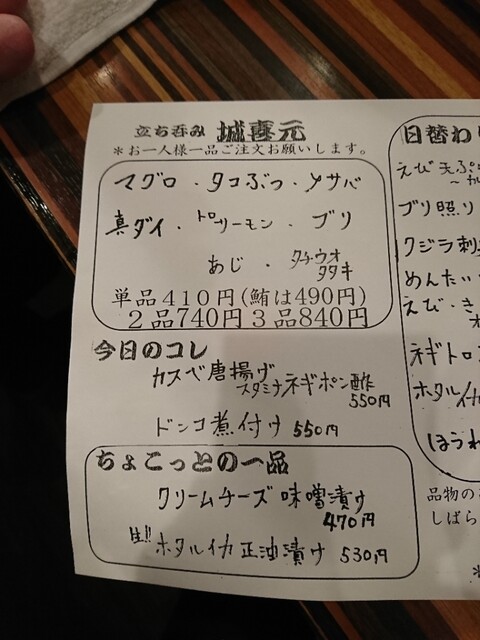 立ち呑み 城喜元
*お一人様一品ご注文お願いします。
マグロ・タコぶつ・〆サバ
真ダイ・トロサーモン・ブリ
あじ・タチウオタタキ
単品410円(鮪は490円)
2品740円3品840円
今日のコレ
カスベ唐揚げ
スタミナネギポン酢
550円
ドンコ煮付け 550円
ちょこっとの一品
クリームチーズ味噌漬け
470円
生!!ホタルイカ正油漬け 530円
日替わり
えび天ぷ
ブリ照り
クジラ刺
めんたい
えび・き
ネギトロ
ホタルイカ
ほうれ
品物の
しばら